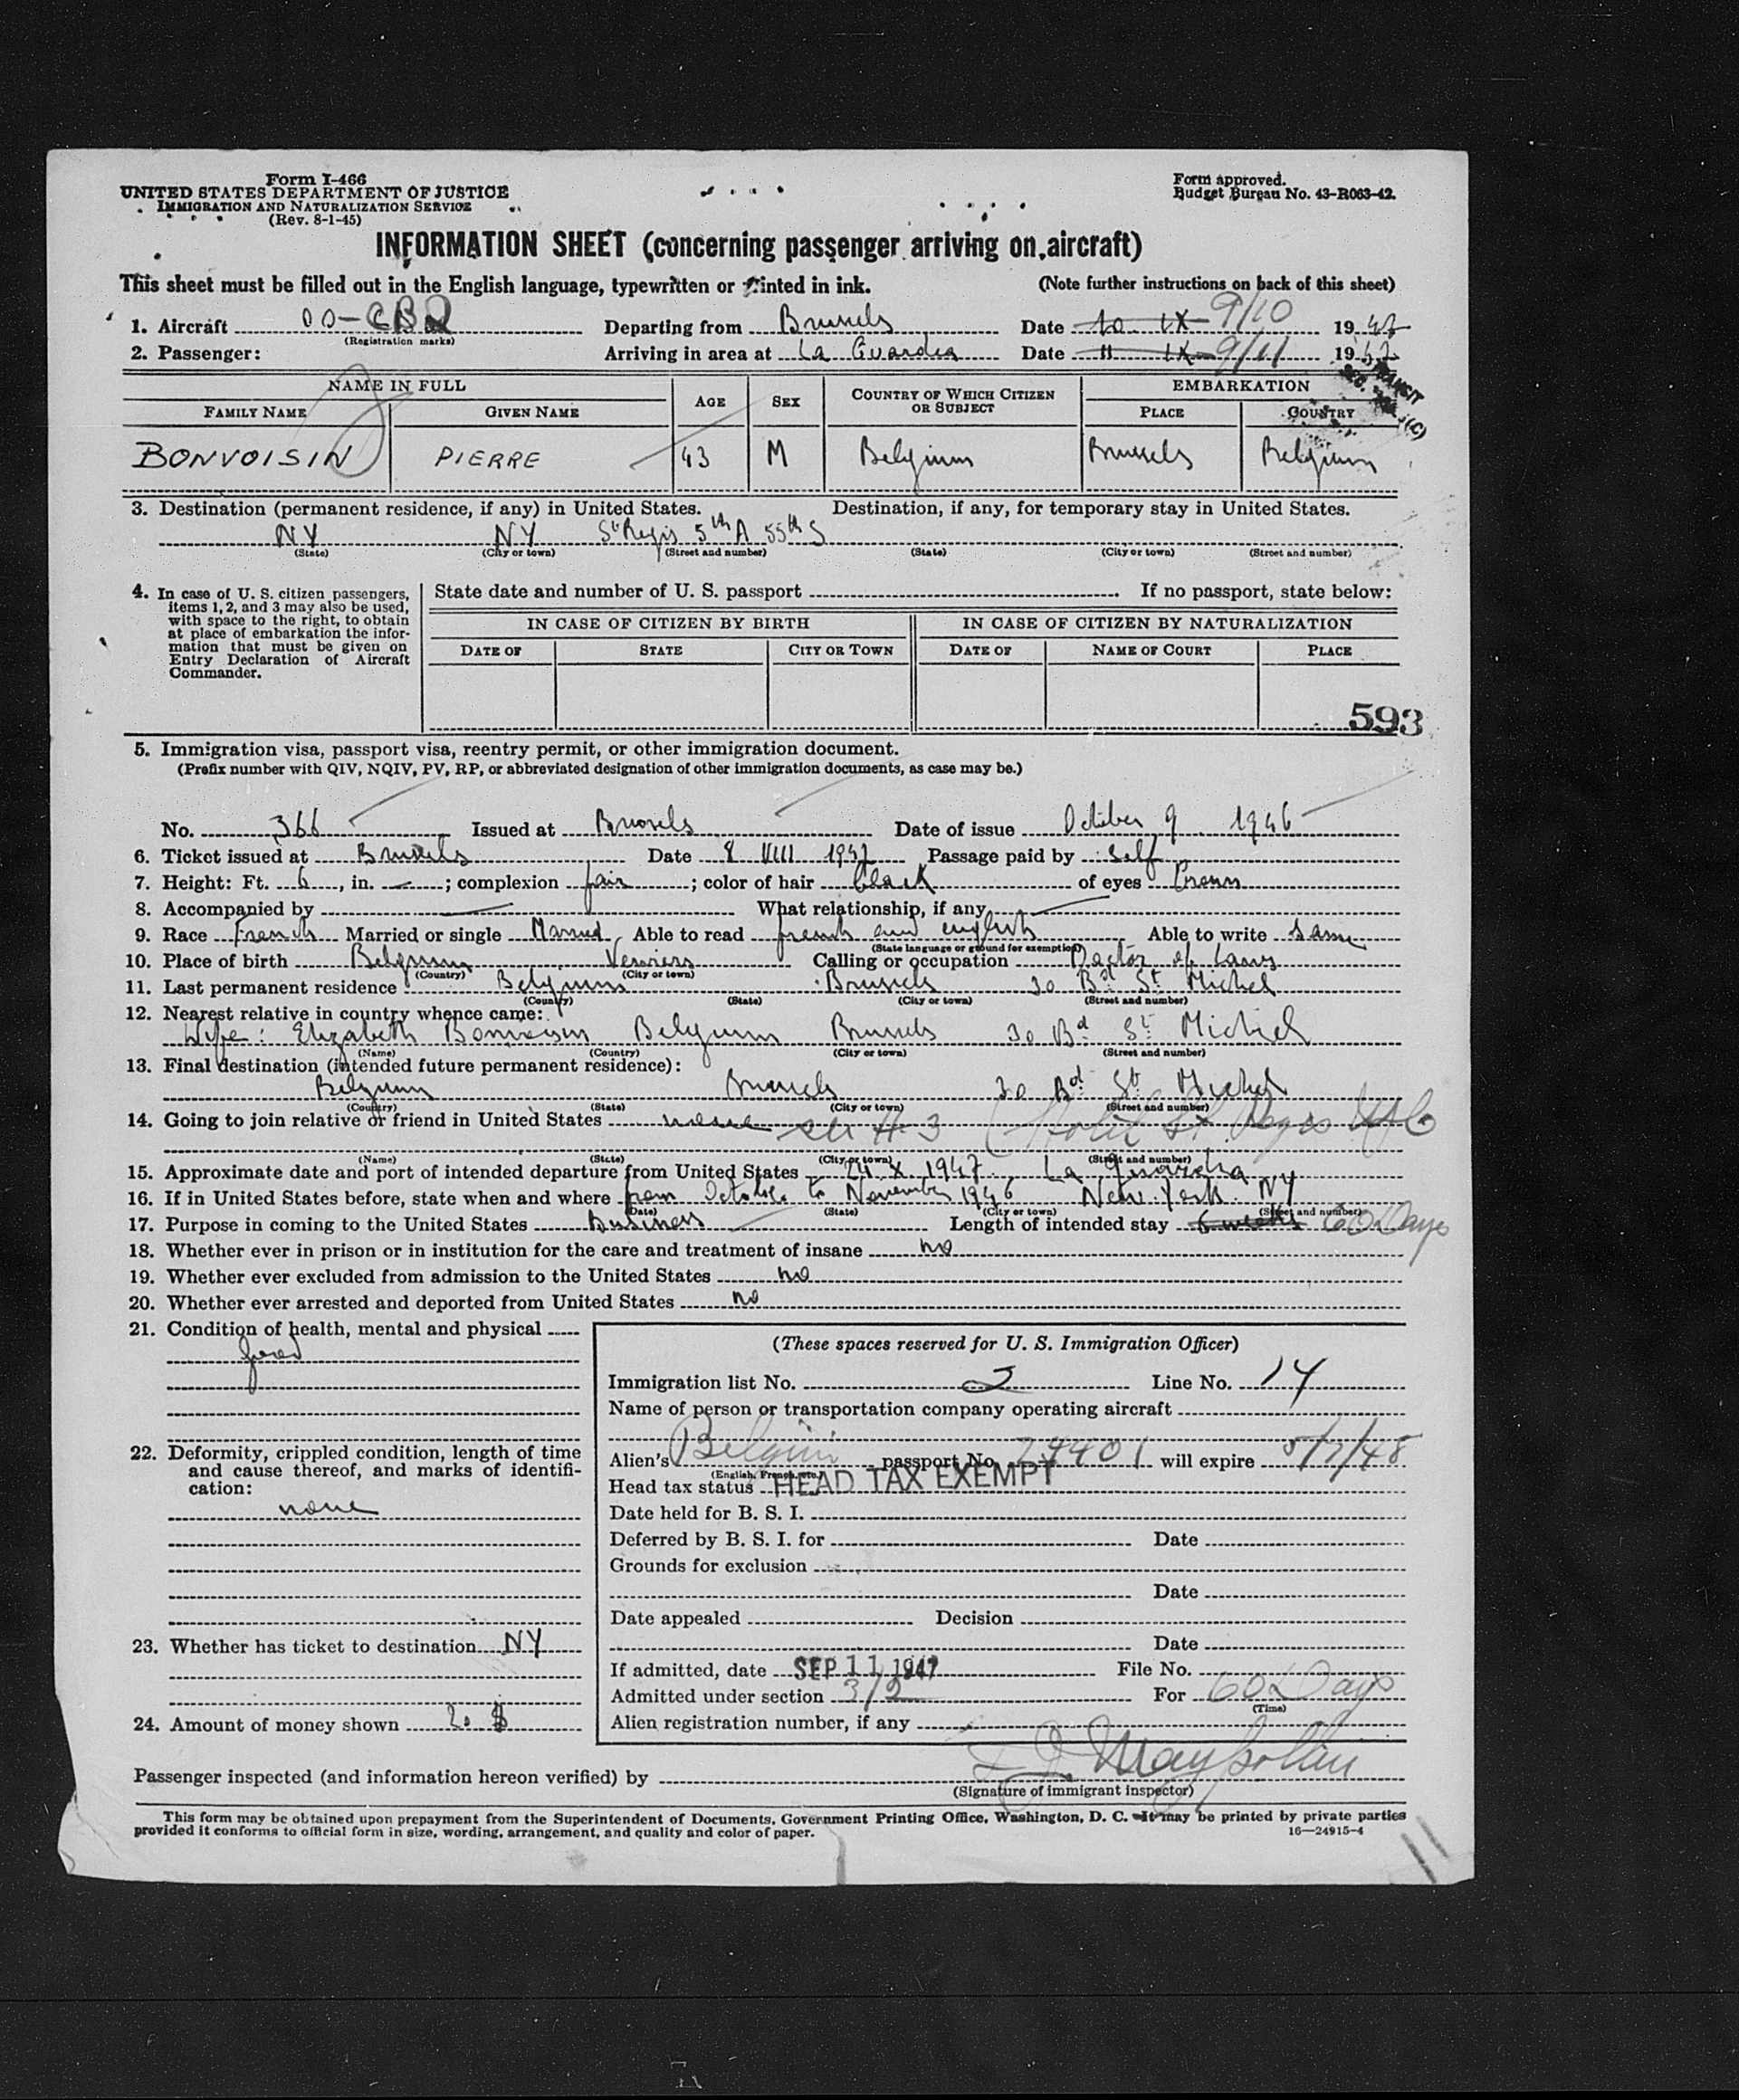 Form I-466
UNITED STATES DEPARTMENT OF JUSTICE
IMMIGRATION AND NATURALIZATION SERVICE
(Rev. 8-1-45)
Form approved.
Budget Bureau No. 43-R063-42.
INFORMATION SHEET (concerning passenger arriving on aircraft)
This sheet must be filled out in the English language, typewritten or printed in ink. (Note further instructions on back of this sheet)
1. Aircraft OO-CBQ Departing from Brussels Date 10 IX 9/10 1947
(Registration marks)
2. Passenger: Arriving in area at La Guardia Date 11 IX 9/11 1947
TRANSIT
SEC. (C)
NAME IN FULL AGE SEX COUNTRY OF WHICH CITIZEN OR SUBJECT EMBARKATION
FAMILY NAME GIVEN NAME PLACE COUNTRY
BONVOISIN PIERRE 43 M Belgium Brussels Belgium
3. Destination (permanent residence, if any) in United States. Destination, if any, for temporary stay in United States.
NY NY St Regis 5th A 55th S
(State) (City or town) (Street and number) (State) (City or town) (Street and number)
4. In case of U. S. citizen passengers, items 1, 2, and 3 may also be used, with space to the right, to obtain at place of embarkation the information that must be given on Entry Declaration of Aircraft Commander.
State date and number of U. S. passport If no passport, state below:
IN CASE OF CITIZEN BY BIRTH IN CASE OF CITIZEN BY NATURALIZATION
DATE OF STATE CITY OR TOWN DATE OF NAME OF COURT PLACE
593
5. Immigration visa, passport visa, reentry permit, or other immigration document.
(Prefix number with QIV, NQIV, PV, RP, or abbreviated designation of other immigration documents, as case may be.)
No. 366 Issued at Brussels Date of issue October 9 1946
6. Ticket issued at Brussels Date 8 VIII 1947 Passage paid by Self
7. Height: Ft. 6, in. —; complexion fair; color of hair black of eyes brown
8. Accompanied by — What relationship, if any —
9. Race French Married or single Married Able to read french and english Able to write same
(State language or ground for exemption)
10. Place of birth Belgium Verviers Calling or occupation Doctor of Laws
(Country) (City or town)
11. Last permanent residence Belgium Brussels 30 Bd St Michel
(Country) (State) (City or town) (Street and number)
12. Nearest relative in country whence came:
Wife: Elizabeth Bonvoisin Belgium Brussels 30 Bd St Michel
(Name) (Country) (City or town) (Street and number)
13. Final destination (intended future permanent residence):
Belgium Brussels 30 Bd St Michel
(Country) (State) (City or town) (Street and number)
14. Going to join relative or friend in United States none see # 3 (Hotel St. Regis NYC
(Name) (State) (City or town) (Street and number)
15. Approximate date and port of intended departure from United States 24 X 1947 La Guardia
16. If in United States before, state when and where from October to November 1946 New York NY
(Date) (State) (City or town) (Street and number)
17. Purpose in coming to the United States Business Length of intended stay 6 weeks 60 Days
18. Whether ever in prison or in institution for the care and treatment of insane no
19. Whether ever excluded from admission to the United States no
20. Whether ever arrested and deported from United States no
21. Condition of health, mental and physical
good
22. Deformity, crippled condition, length of time and cause thereof, and marks of identification:
none
23. Whether has ticket to destination NY
24. Amount of money shown 20 $
(These spaces reserved for U. S. Immigration Officer)
Immigration list No. 2 Line No. 14
Name of person or transportation company operating aircraft
Alien's Belgium passport No. 24401 will expire 5/7/48
(English, French, etc.)
Head tax status HEAD TAX EXEMPT
Date held for B. S. I.
Deferred by B. S. I. for Date
Grounds for exclusion
Date
Date appealed Decision
Date
If admitted, date SEP 11 1947 File No.
Admitted under section 3/2 For 60 Days
(Time)
Alien registration number, if any
Passenger inspected (and information hereon verified) by
(Signature of immigrant inspector)
This form may be obtained upon prepayment from the Superintendent of Documents, Government Printing Office, Washington, D. C. It may be printed by private parties
provided it conforms to official form in size, wording, arrangement, and quality and color of paper. 16—24915-4